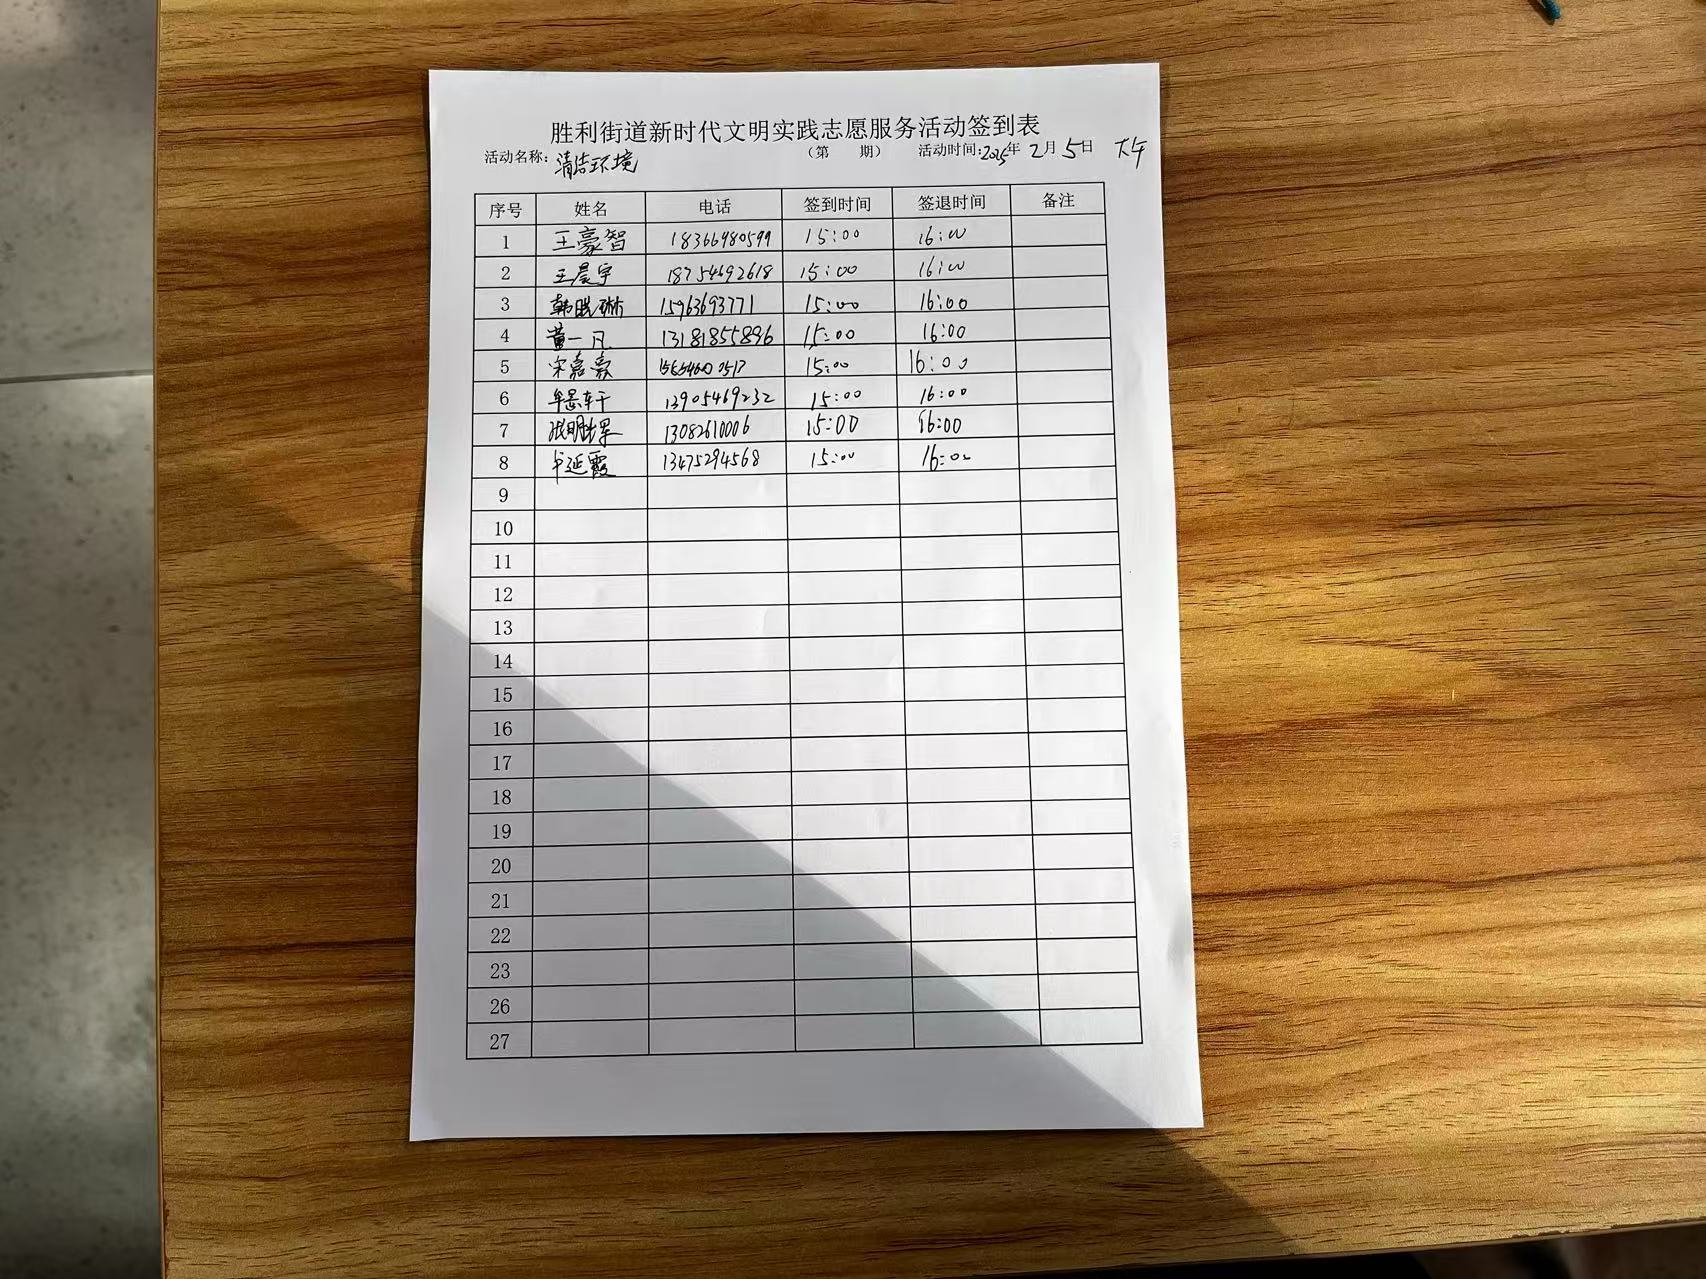 胜利街道新时代文明实践志愿服务活动签到表
活动名称:清洁环境 （第 期） 活动时间:2025年 2月 5日 下午
序号 姓名 电话 签到时间 签退时间 备注
1 王豪智 18366980599 15:00 16:00
2 王晨宇 18754692618 15:00 16:00
3 韩 琳 15963693771 15:00 16:00
4 董一凡 13181855896 15:00 16:00
5 宋嘉豪 15:00 16:00
6 牟景轩 13905469232 15:00 16:00
7 张明 13082610006 15:00 16:00
8 延霞 13475294568 15:00 16:00
9
10
11
12
13
14
15
16
17
18
19
20
21
22
23
26
27